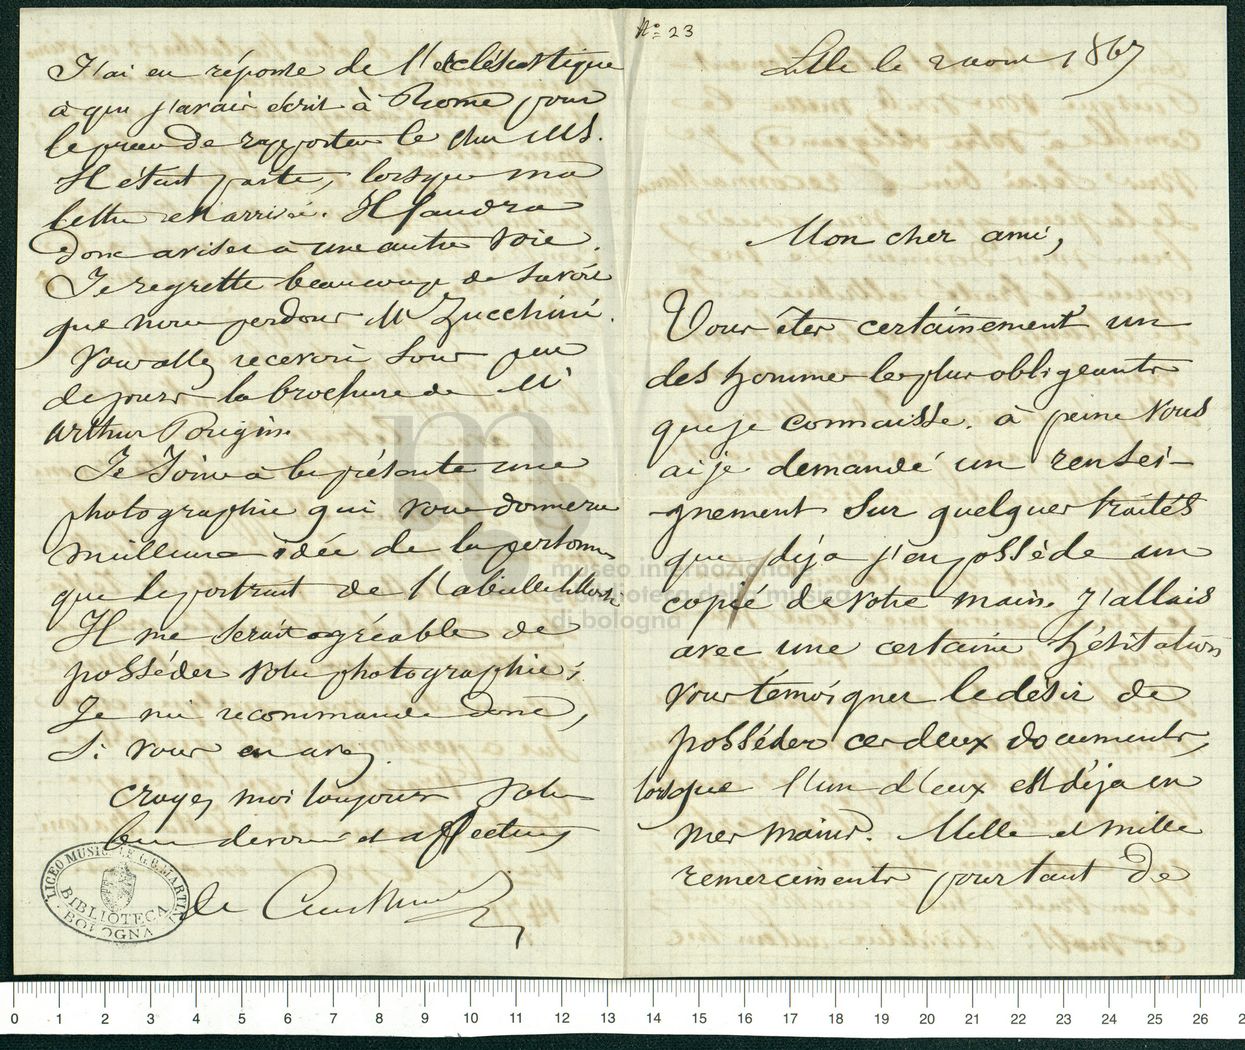 Nº 23
Lille le 2 aout 1867
Mon cher ami,
Vous êtes certainement un
des hommes les plus obligeants
que je connaisse. à peine vous
ai je demandé un rensei-
gnement sur quelques traités
que déja j'en possède un
copié de votre main. J'allais
avec une certaine hésitation
vous témoigner le désir de
posséder ces deux documents,
lorsque l'un d'eux est déja en
mes mains. Mille et mille
remerciments pour tant de
J'ai eu réponse de l'ecclésiastique
à qui j'avais écrit à Rome pour
le prier de rapporter le cher MS.
Il était parti, lorsque ma
lettre est arrivée. Il faudra
donc aviser à une autre voie.
Je regrette beaucoup de savoir
que nous perdons Mr Zucchini.
Vous allez recevoir sous peu
de jours la brochure de Mr
Arthur Pougin.
Je Joins à la présente une
photographie qui vous donnera
meilleure idée de la personne
que le portrait de l'abeille
Il me serait agréable de
posséder votre photographie;
Je me recommande donc,
Si vous en avez.
croyez moi toujours votre
bien devoué et affectueux
de Coussemaker
LICEO MUSICALE G.B. MARTINI
BIBLIOTECA
BOLOGNA
museo internazionale
e biblioteca della musica
di bologna
0 1 2 3 4 5 6 7 8 9 10 11 12 13 14 15 16 17 18 19 20 21 22 23 24 25 26